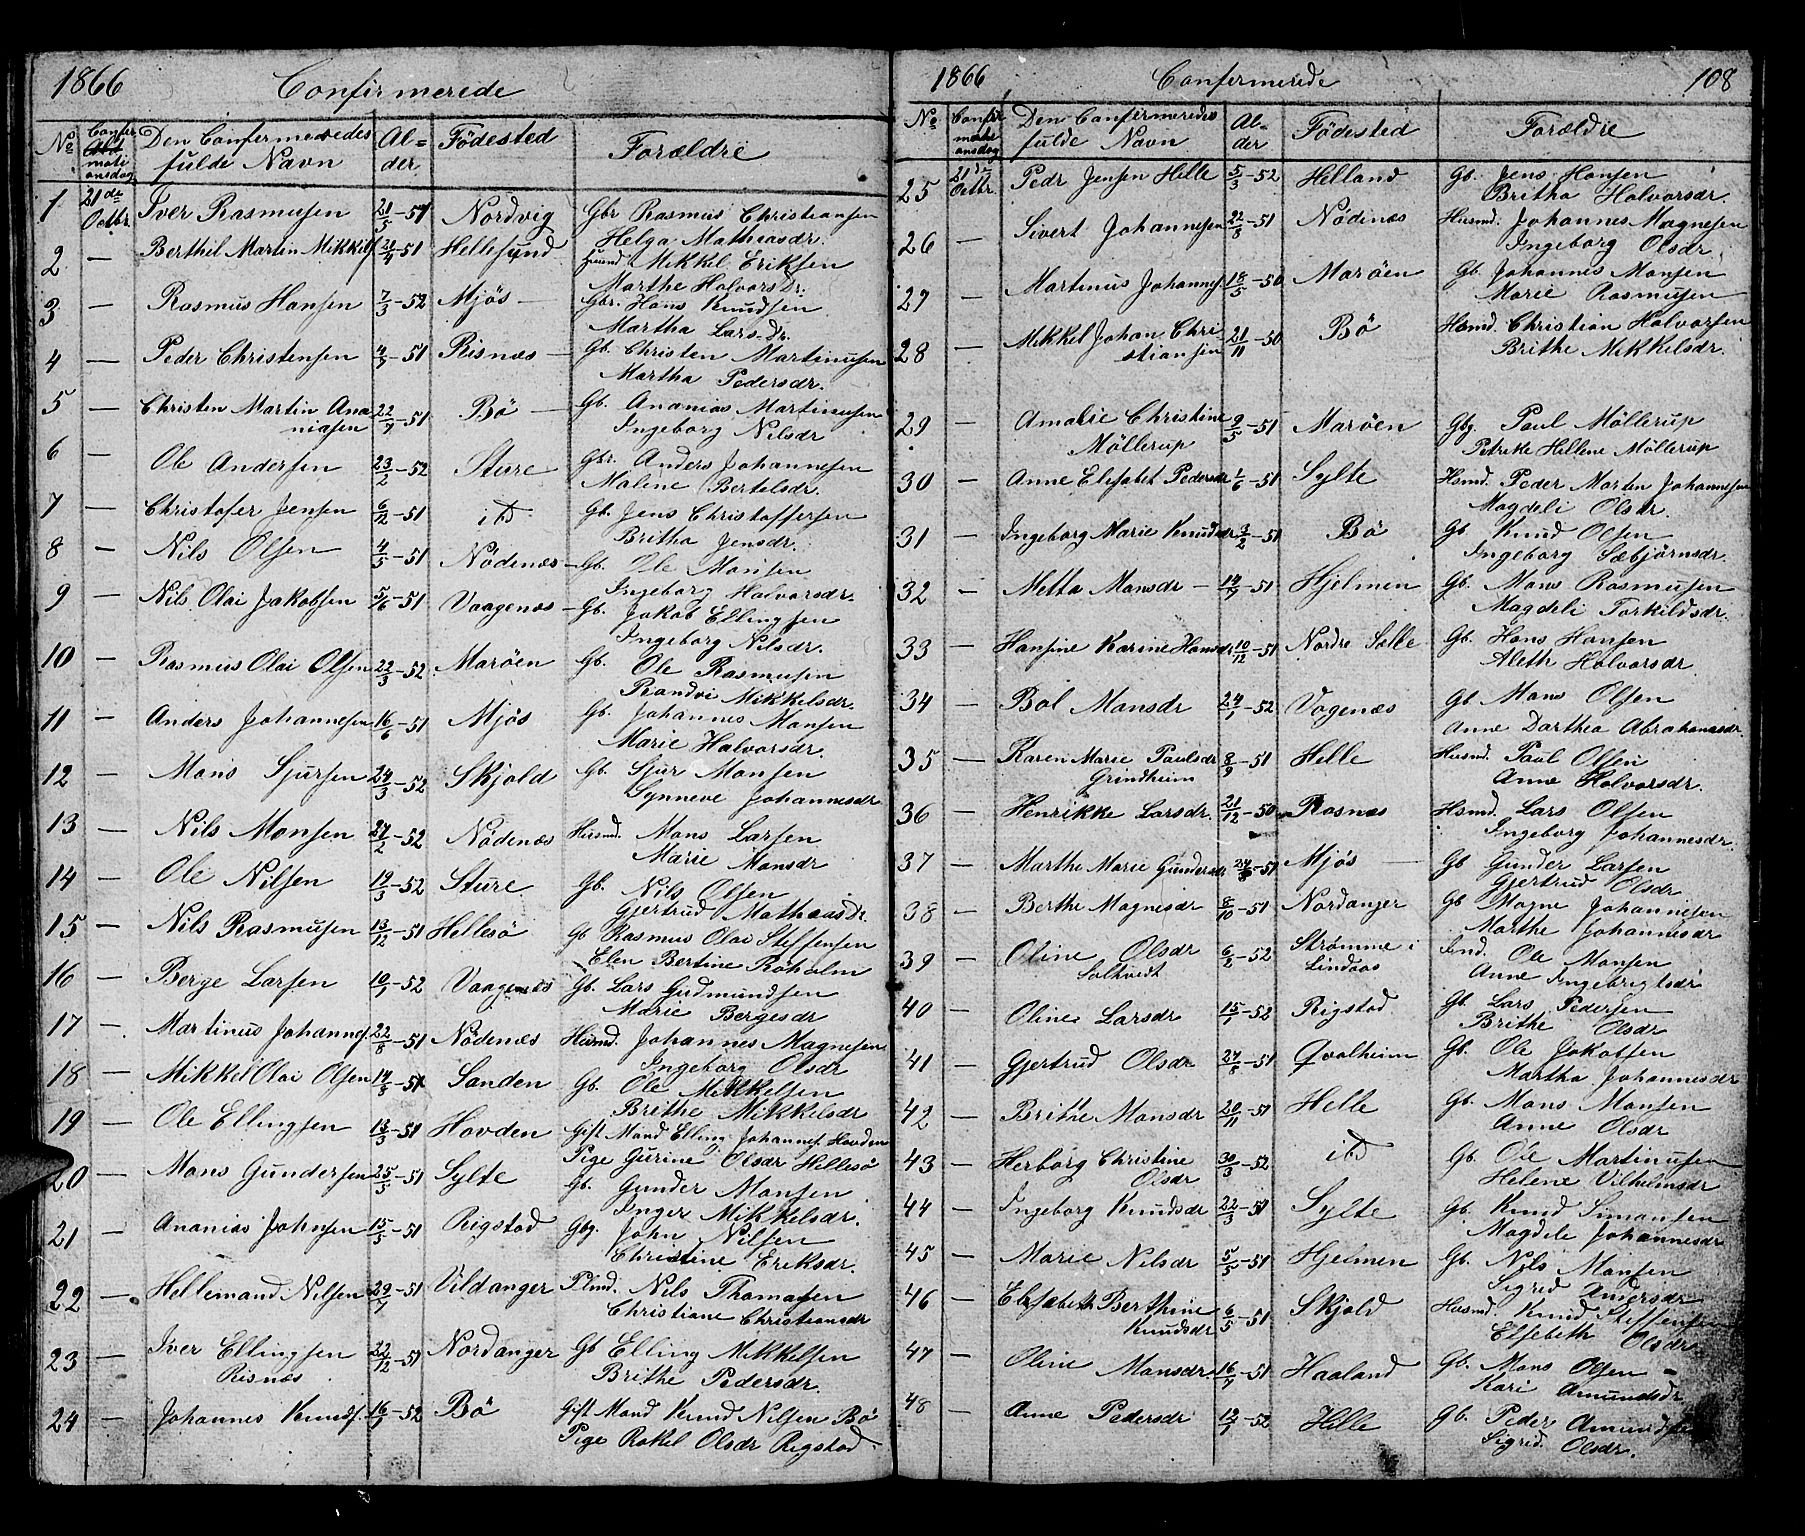 1866 Confirmerede
No Confirmationsdag Den Confirmeredes fulde Navn Alder Födested Forældre
1 21de Octbr. Iver Rasmusen 21/5-51 Nordvig Gbr Rasmus Christiansen
Helga Mathiasdr.
2 — Berthil Martin Mikkels 21/4-51 Hellesund Huusmd Mikkel Eriksen
Marthe Halvorsdr.
3 — Rasmus Hansen 7/3-52 Mjös — Gbr. Hans Knudsen
Martha Larsdr.
4 — Peder Christensen 4/5-51 Risnæs — Gb. Christen Martinusen
Martha Pedersdr.
5 — Christen Martin Ana 22/7-51 Bö — Gb. Ananias Martinusen
niasen Ingeborg Nilsdr
6 — Ole Andersen 23/2-52 Sture Gbr. Anders Johannesen
Malene Bertelsdr.
7 — Christofer Jensen 6/12-51 ibd Gb. Jens Christoffersen
Britha Jensdr.
8 — Nils Olsen 4/5-51 Nödenæs — Gb. Ole Monsen
Ingeborg Halvorsdr.
9 — Nils Olai Jakobsen 5/6-51 Vaagenæs — Gb. Jakob Ellingsen
Ingeborg Nilsdr.
10 — Rasmus Olai Olsen 22/3-52 Maröen Gb. Ole Rasmusen
Randvi Mikkelsdr.
11 — Anders Johannesen 16/6-51 Mjös Gb. Johannes Monsen
Marie Halvorsdr.
12 — Mons Sjursen 24/3-52 Skjold Gb. Sjur Monsen
Synneve Johannesdr
13 — Nils Monsen 27/2-52 Nödenæs Huusmd. Mons Larsen
Marie Monsdr
14 — Ole Nilsen 19/3-52 Sture Gb. Nils Olsen
Gjertrud Mathiasdr.
15 — Nils Rasmusen 13/12-51 Hellesö Gb Rasmus Olai Steffensen
Elen Bertine Roholm
16 — Berge Larsen 10/1-52 Vaagenæs Gb. Lars Gudmundsen
Marie Bergesdr
17 — Martinus Johannes. 22/8-51 Nödenæs Huusmd. Johannes Magnesen
Ingeborg Olsdr
18 — Mikkel Olai Olsen 14/5-51 Sanden Gb. Ole Mikkelsen
Brithe Mikkelsdr
19 — Ole Ellingsen 13/3-51 Hovden Gift Mand Elling Johannes. Hovden
Pige Gurine Olsdr Hellesö
20 — Mons Gundersen 25/5-51 Sylte Gb. Gunder Monsen
Inger Mikkelsdr.
21 — Ananias Johnsen 15/5-51 Rigstad Gbg. John Nilsen
Christine Eriksdr.
22 — Hellemand Nilsen 29/7-51 Vildanger Plmd. Nils Thomasen
Christiane Christiansdr
23 — Iver Ellingsen 22/12-51 Nordanger Gb Elling Mikkelsen
Risnæs Brithe Pedersdr.
24 — Johannes Knuds. 16/1-52 Bö Gift Mand Knud Nilsen Bö
Pige Rakel Olsdr Rigstad.
1866 Confermerede 108
No Confirmationsdag Den Confermeredes fulde Navn Alder Födested Forældre
25 21de Octbr. Pedr Jensen Hille 5/3-52 Helland Gb. Jens Hansen
Britha Halvorsdr.
26 — Sivert Johannesen 22/8-51 Nödenæs Husmd. Johannes Magnesen
Ingeborg Olsdr.
27 — Martinus Johannes. 18/5-50 Maröen Gb. Johannes Monsen
Marie Rasmusen
28 — Mikkel Johan Chri 21/11-50 Bö Husmd. Christian Halvorsen
stiansen Brithe Mikkelsdr.
29 — Amalie Christine 9/5-51 Maröen Gbg. Paul Möllerup
Möllerup Petrike Hellene Möllerup
30 — Anne Elisabet Pedersdr 1/6-51 Sylte Husmd. Peder Martin Johannesen
Magdeli Olsdr.
31 — Ingeborg Marie Knudsdr 3/2-51 Bö Gb Knud Olsen
Ingeborg Sæbjörnsdr.
32 — Metta Monsdr — 14/9-51 Hjelmen Gb. Mons Rasmusen
Magdeli Torkildsdr.
33 — Hansine Karine Hansdr 10/12-51 Nordre Solle Gb. Hans Hansen
Aleth Halvorsdr
34 — Bol Monsdr 24/1-52 Vogenæs Gb Mons Olsen
Anne Darthea Abrahamsdr.
35 — Karen Marie Paulsdr 8/9-51 Helle Husmd. Paul Olsen
Grindheim Anne Halvorsdr.
36 — Henrikke Larsdr. 21/12-50 Rosnæs Husmd. Lars Olsen
Ingeborg Johannesdr.
37 — Marthe Marie Gundersdr 24/8-51 Mjös — Gb Gunder Larsen
Gjertrud Olsdr
38 — Berthe Magnesdr 8/10-51 Nordanger Gb Magne Johannesen
Marthe Johannesdr
39 — Oline Olsdr 6/2-52 Strömme i Ind. Ole Monsen
Soltvedt Lindaas Anne Ingebrigtsdr
40 — Oline Larsdr 15/1-52 Rigstad Gb. Lars Pedersen
Brithe Olsdr
41 — Gjertrud Olsdr 27/8-51 Qvalheim Gb. Ole Jakobsen
Martha Johannesdr
42 — Brithe Monsdr 20/11-51 Helle Gb. Mons Monsen
Anne Olsdr
43 — Herborg Christine 30/3-52 ibd Gb. Ole Martinusen
Olsdr Helene Vilhelmsdr
44 — Ingeborg Knudsdr 22/3-51 Sylte Gb. Knud Simonsen
Magdele Johannesdr
45 — Marie Nilsdr 5/5-51 Hjelmen Gb. Nils Monsen
Sigrid Andersdr
46 — Elisabeth Berthine 6/5-51 Skjold Husmd. Knud Steffensen
Knudsdr Elsebeth Olsdr
47 — Oline Monsdr. 16/7-51 Haaland Gb. Mons Olsen —
Kari Amundsdr
48 — Anne Pedersdr 19/7-52 Hille Gb. Peder Amundsen
Sigrid Olsdr.